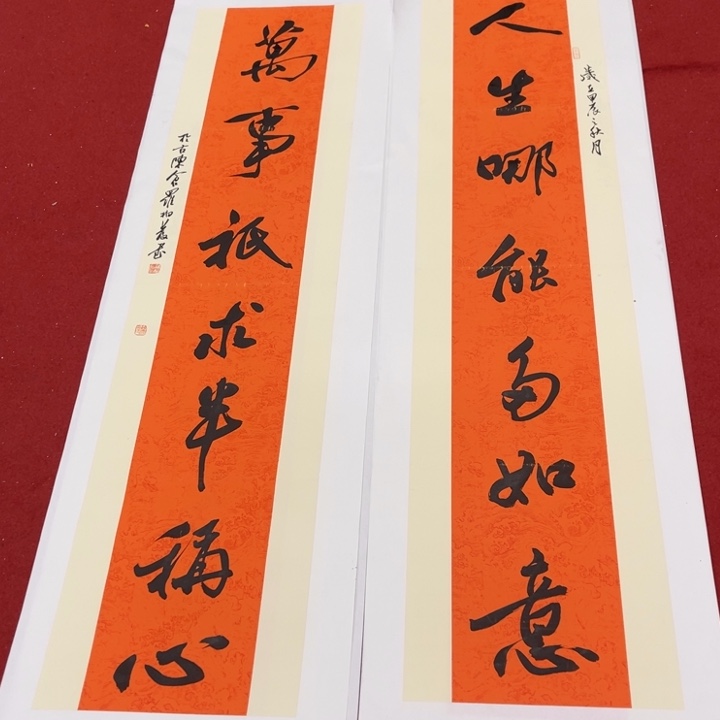 歲在甲辰之秋月
人生哪能多如意
萬事祇求半稱心
於古陳倉羅書